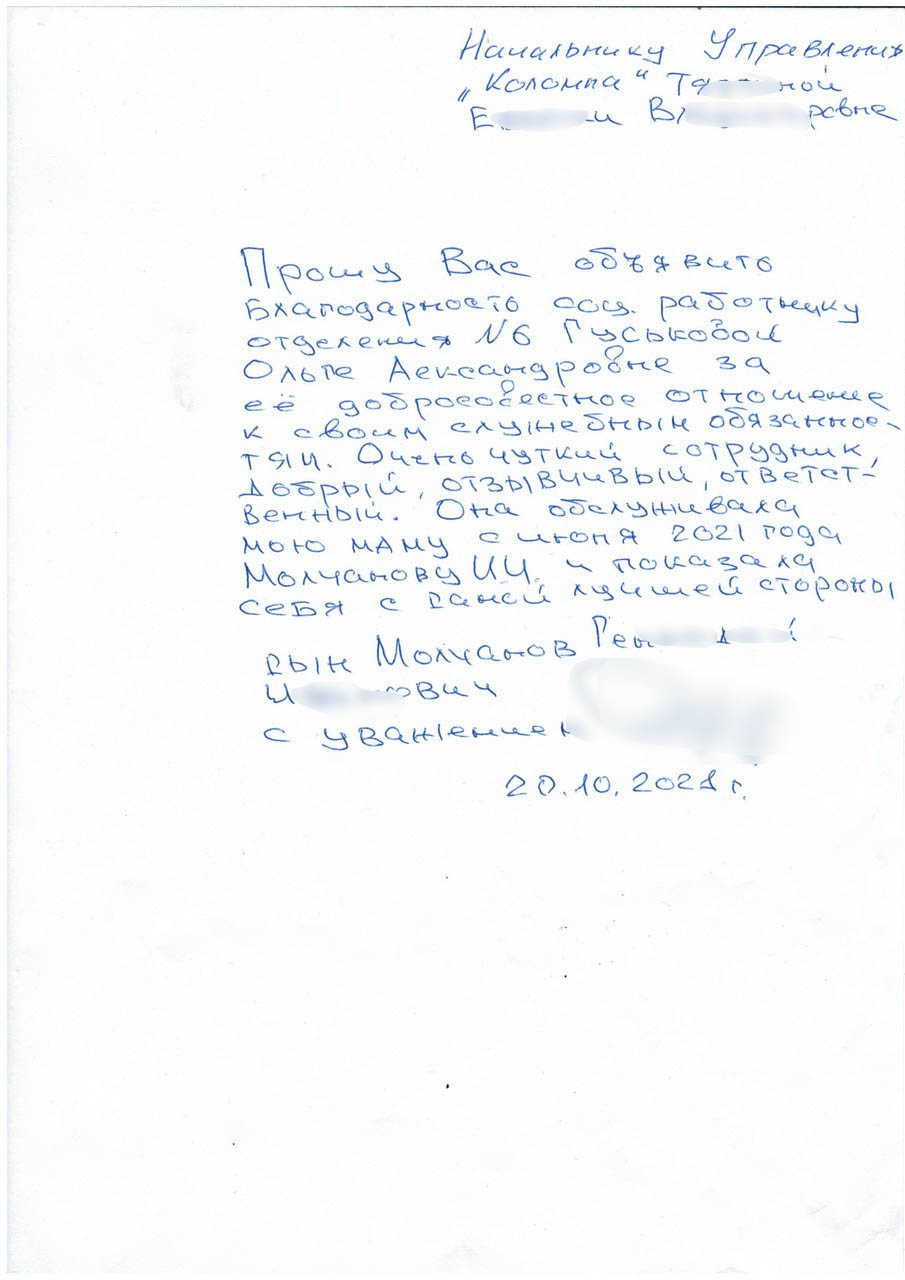 Начальнику Управления
„Коломпа" Тя ной
Е и В ровне
Прошу Вас объявить
Благодарность соц. работнику
отделения N6 Гуськовой
Ольге Аександровне за
её добросовестное отношение
к своим служебным обязаннос-
тям. Очень чуткий сотрудник,
добрый, отзывчивый, ответст-
венный. Она обслуживала
мою маму с июня 2021 года
Молчанову И.И. и показала
себя с самой лучшей стороны
сын Молчанов Ген
И ович
с уважением
20.10.2021 г.